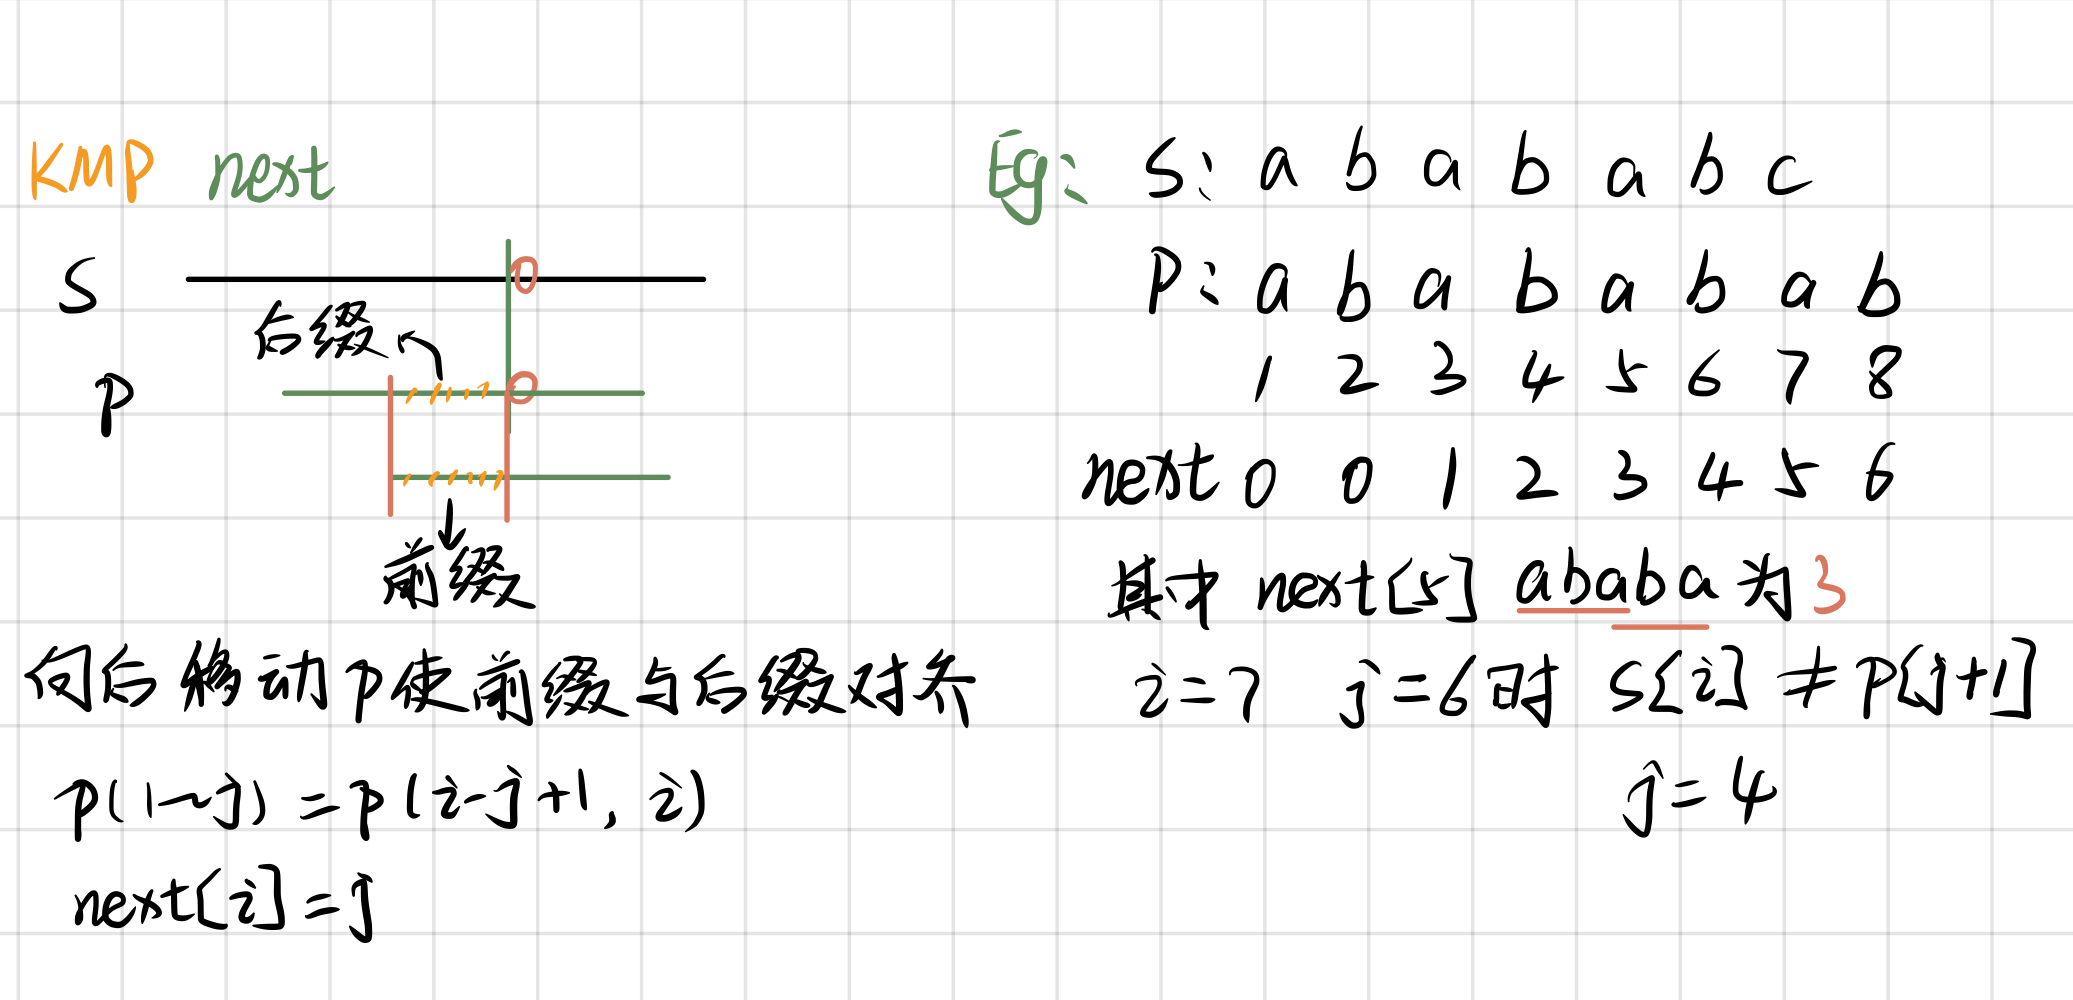 KMP next
S
后缀
P
前缀
向后移动p使前缀与后缀对齐
p(1~j) = p(i-j+1, i)
next[i]=j
Eg: S: a b a b a b c
P: a b a b a b a b
1 2 3 4 5 6 7 8
next 0 0 1 2 3 4 5 6
其中 next[5] ababa 为 3
i=7 j=6时 S[i] ≠ P[j+1]
j=4